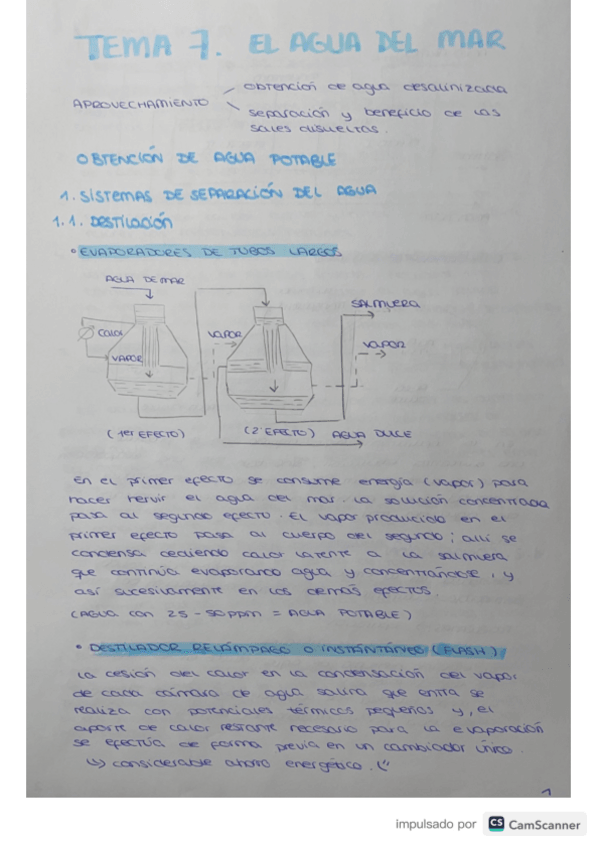 TEMA 7. EL AGUA DEL MAR
APROVECHAMIENTO
obtención de agua desalinizada
separación y beneficio de las
sales disueltas.
OBTENCIÓN DE AGUA POTABLE
1. SISTEMAS DE SEPARACIÓN DEL AGUA
1.1. DESTILACIÓN
• EVAPORADORES DE TUBOS LARGOS
AGUA DE MAR
SALMUERA
CALOR
VAPOR
VAPOR
VAPOR
(1er EFECTO)
(2º EFECTO)
AGUA DULCE
En el primer efecto se consume energía (vapor) para
hacer hervir el agua del mar. La solución concentrada
pasa al segundo efecto. El vapor producido en el
primer efecto pasa al cuerpo del segundo; allí se
condensa cediendo calor latente a la salmuera
que continúa evaporando agua y concentrándose, y
así sucesivamente en los demás efectos.
(AGUA con 25 - 50 ppm = AGUA POTABLE)
• DESTILADOR RELÁMPAGO O INSTANTÁNEO (FLASH)
La cesión del calor en la condensación del vapor
de cada cámara de agua salina que entra se
realiza con potenciales térmicos pequeños y, el
aporte de calor restante necesario para la evaporación
se efectúa de forma previa en un cambiador único.
↳ considerable ahorro energético.
1
impulsado por CS CamScanner